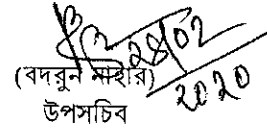 ২৪/০২
2020
(বদরুন নাহার)
উপসচিব